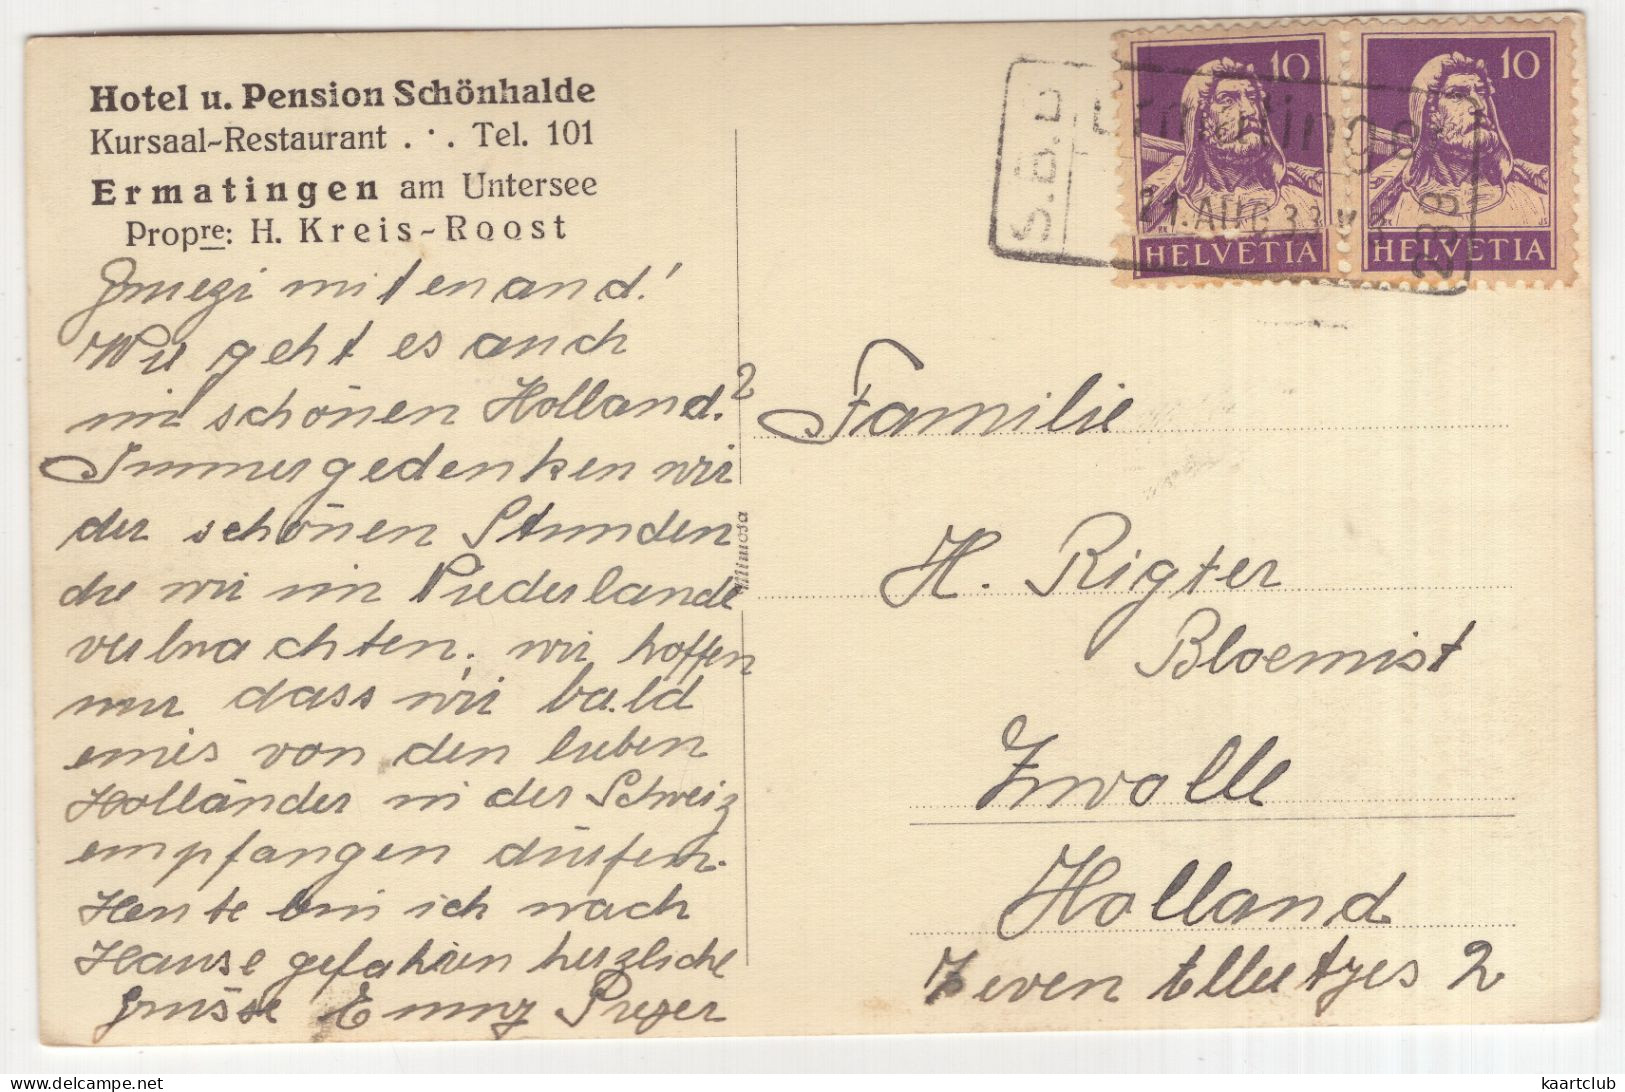 Hotel u. Pension Schönhalde
Kursaal-Restaurant . · . Tel. 101
Ermatingen am Untersee
Propre: H. Kreis-Roost
Gruezi mitenand!
Wie geht es auch
im schönen Holland?
Immer gedenken wir
der schönen Stunden
die wir im Niederlande
verbrachten. wir hoffen
nur dass wir bald
eines von den lieben
Holländer in der Schweiz
empfangen dürfen.
Heute bin ich nach
Hause gefahren herzliche
Grüsse
Mimosa
10
10
HELVETIA
HELVETIA
S.B.B.
Ermatingen
21. AUG. 33
Familie
H. Rigter
Bloemist
Zwolle
Holland
Zeven 2
kaartclub